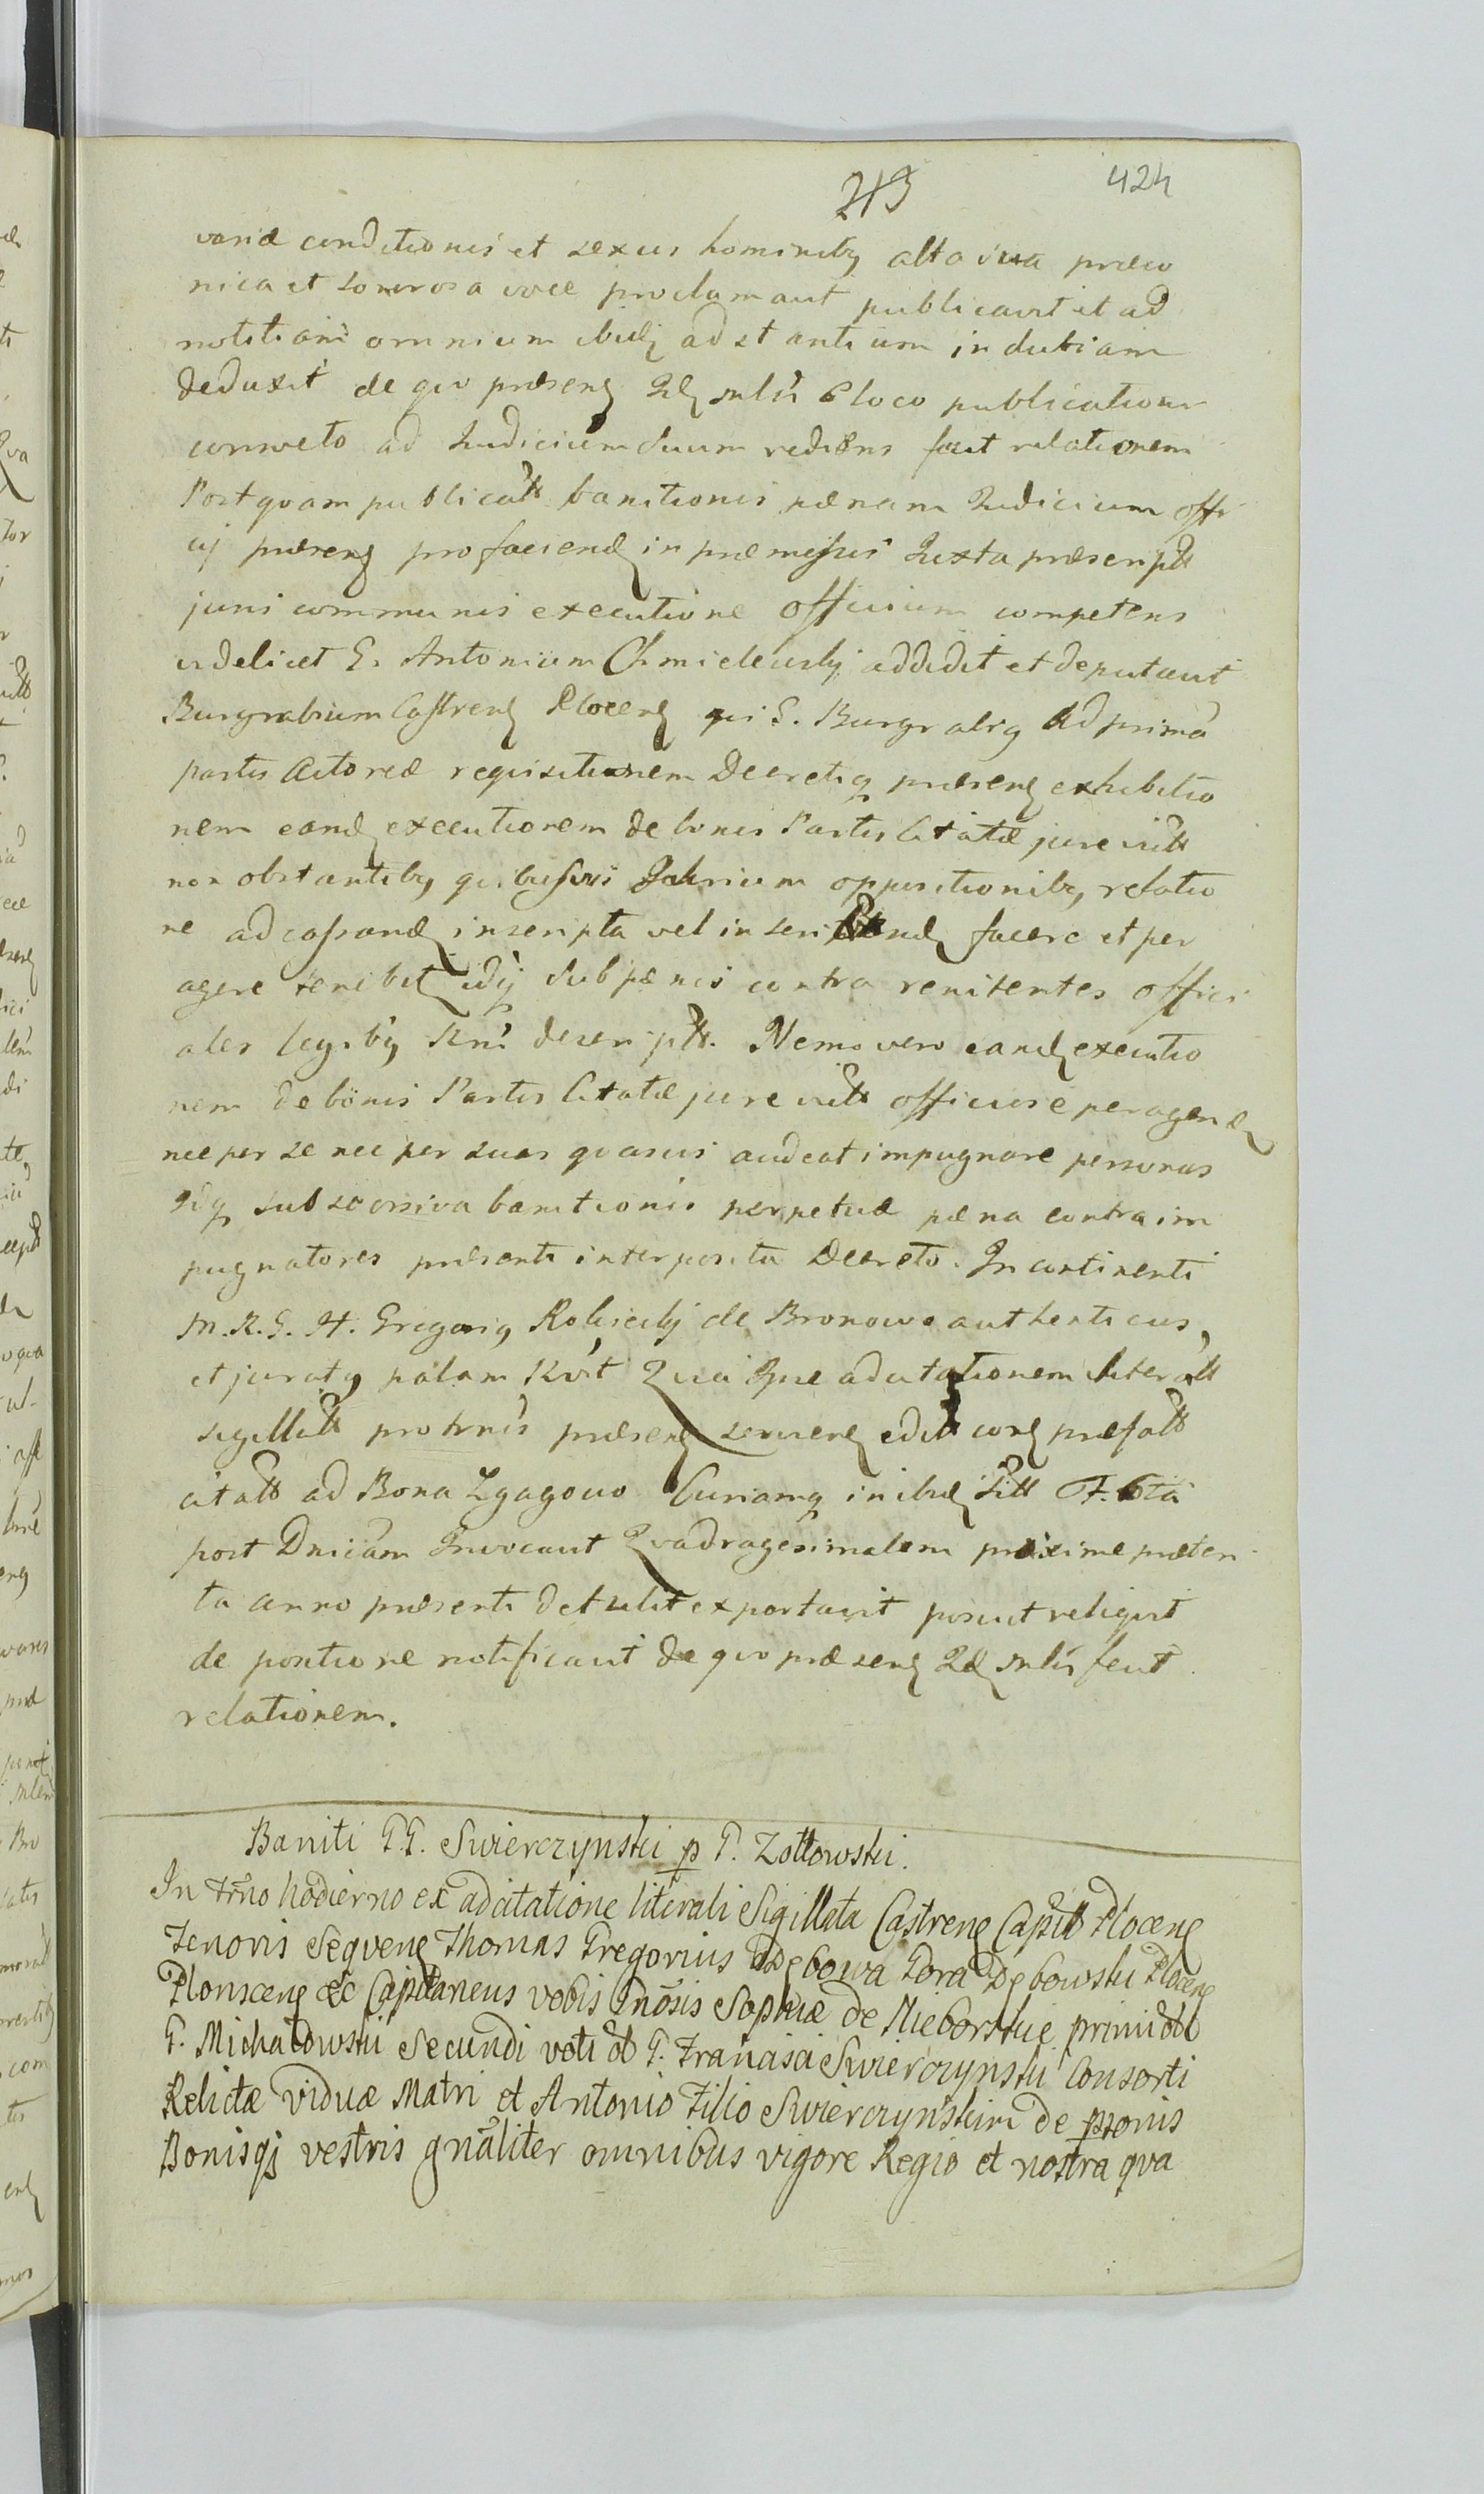 213 424
variæ conditionis et sexus hominibg alta sua præco
nica et sonorosa voce proclamavit publicavit et ad
notitiam omnium ibidg adstantium indubiam
deduxit de quo præseng Jdg mlŕi e loco publicationi
consveto ad Judicium suum rediens fecit relationem
Post qvam publicatt banitionis pænam Judicium offi
cij præseng pro faciendg in præmissis Juxta præscriptt
juris communis executione officium competens
videlicet G. Antonium Chmielewskj addidit et deputavit
Burgrabium Castreng Ploceng qui G. Burgrabig ad primā
partis Actoreæ reqvisitionem Decretiq præseng exhibitio
nem eandg executionem de bonis Partis Citatæ jure victt
non obstantibg qvibusvis oppositionibg relatio
ne ad cassandg inscripta vel inscribendg facere et per
agere tenebitg idq sub pænis contra renitentes offici
ales legibg Rni descriptt. Nemo vero eandg executio
nem de bonis Partis Citatæ jure victt officiose peragendg
nec per se nec per suas qvasvis audeat impugnare personas
idq sub scorsiva banitionis perpetuæ pæna contra im
pugnatores præsenti interposita Decreto. In continenti
M.R.G. H. Gregorig Rokickj de Bronowo authenticus
et juratg palam Rvit Qvia Jpse adcitationem literātt
sigillātt pro trnis præseng servieng edit corg præfatt
citatt ad Bona Zgagowo Curiamq inibidg sitt F. 6ta
post Dnicam Invocavit Qvadragesimalem proxime præteri
ta anno præsenti detulit exportavit posuit reliqvit
de positione notificavit de quo præseng Jdg mlŕis fecit
relationem.
Baniti G.G. Swierczynski p G. Zołtowski.
In trno hodierno ex adcitatione literali Sigillata Castreng Capitt Ploceng
Tenoris Seqveng Thomas Gregorius a Dębowa Gora Dębowski Ploceng
Plonsceng &c Capitaneus vobis Gnosis Sophiæ de Nieborskie primi ol
G. Michałowski Secundi voti ol G. Francisci Swierczynski Consorti
Relictæ viduæ Matri et Antonio Filio Swierczynskim de psonis
Bonisqj vestris gnāliter omnibus vigore Regio et nostra qva